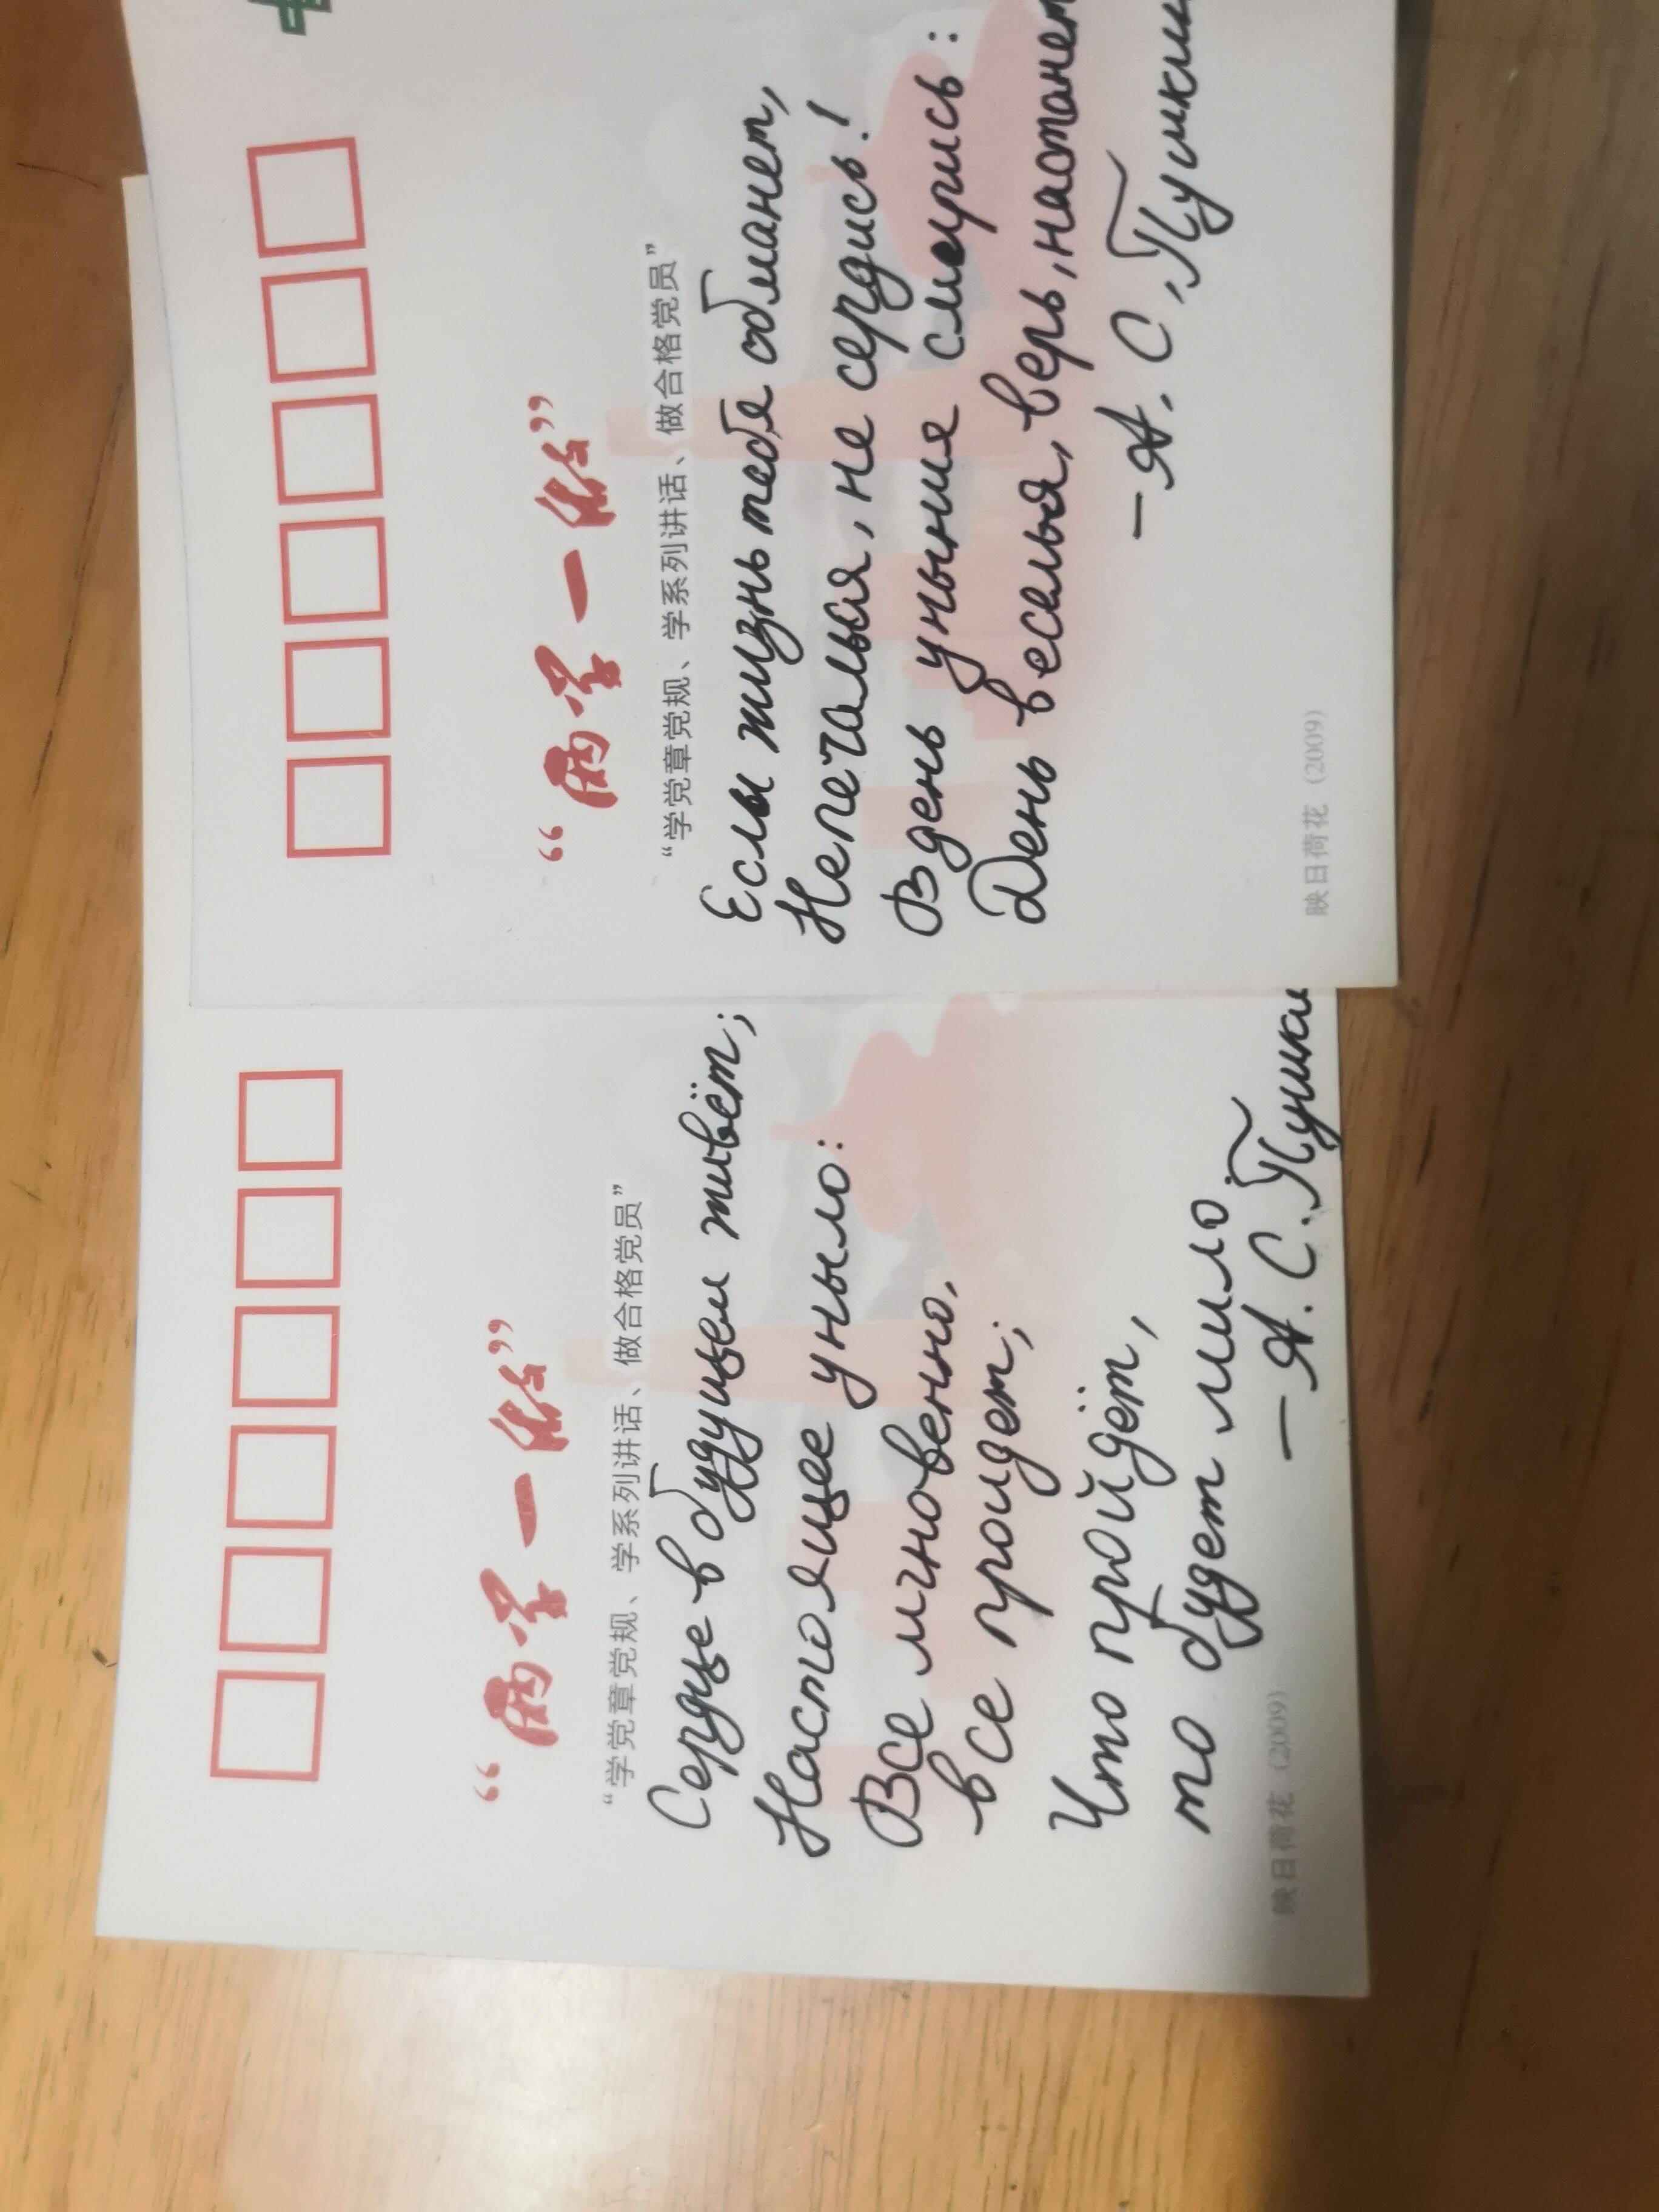 “两学一做”
“学党章党规、学系列讲话、做合格党员”
Сердце в будущем живёт;
Настоящее уныло:
Все мгновенно,
все проидет;
Что пройдёт,
то будет мило.
— А. С. Пушки
映日荷花 (2009)
“两学一做”
“学党章党规、学系列讲话、做合格党员”
Еслы жизнь тебя обманет,
Не печалься, не сердись!
В день уныние смерись:
День веселья, верь, настанет
— А. С. Пушкин
映日荷花 (2009)